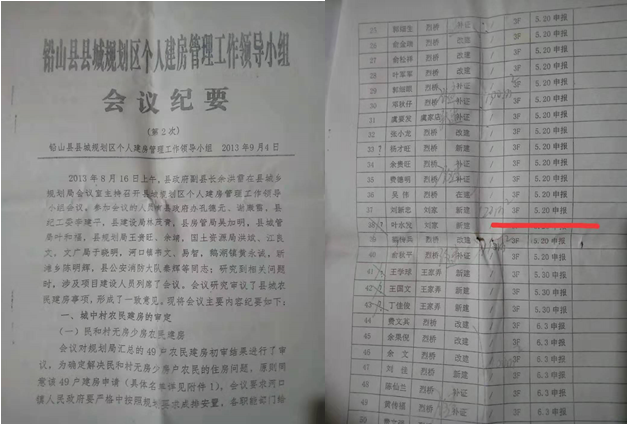 铅山县县城规划区个人建房管理工作领导小组
会议纪要
（第2次）
铅山县县城规划区个人建房管理工作领导小组 2013年9月4日
2013年8月16日上午，县政府副县长余洪雷在县城乡
规划局会议室主持召开县城规划区个人建房管理工作领导
小组会议。参加会议的人员有县政府办
纪工委李建平，县建设局林茂青，县房管局吴加明，县城管
局叶和福，县规划局王贵旺、余靖，国土资源局洪斌、江良
文，文广局于晓明，河口镇韦文、易智，鹅湖镇黄水诚，新
滩乡陈明辉，县公安消防大队等同志；研究到相关问题
时，涉及项目建设人员列席了会议。会议研究审议了县城农
民建房事项，形成了一致意见。现将会议主要内容纪要如下：
一、城中村农民建房的审定
（一）民和村无房少房农民建房
会议对规划局汇总的49户农民建房初审结果进行了审
议，为确定解决民和村无房少房户农民的住房问题，原则同
意该49户建房申请（具体名单详见附件1），会议要求河口
镇人民政府要严格中按照规划要求成排安置，各职能部门给
25 烈桥 3F 5.20申报
26 俞金剑 烈桥 3F 5.20申报
27 俞松祥 烈桥 3F 5.20申报
28 叶军军 烈桥 3F 5.20申报
29 烈桥 补证 3F 5.20申报
30 邓秋仔 烈桥 补证 / 3F 5.20申报
31 虞要发 虞家店 补证 / 3F 5.20申报
32 张小龙 烈桥 改建 / 3F 5.20申报
33 杨才旺 烈桥 新建 / 3F 5.20申报
34 余贵旺 烈桥 补证 / 3F 5.20申报
35 费德明 烈桥 补证 / 3F 5.20申报
36 吴伟 烈桥 改建 / 3F 5.20申报
37 刘新忠 刘家 新建 3F 5.20申报
38 叶水光 刘家 新建 3F 5.20申报
39 烈桥 改建 3F 5.20申报
40 俞秋平 烈桥 补证 3F 5.20申报
41 王学球 王家弄 新建 / 3F 5.30申报
42 王国文 王家弄 新建 / 3F 5.30申报
43 丁佳俊 王家弄 新建 / 3F 5.30申报
44 费文真 烈桥 改建 / 3F 6.3申报
45 余果倪 烈桥 改建 / 3F 6.3申报
46 余文 烈桥 改建 / 3F 6.3申报
47 刘俊 烈桥 新建 / 3F 6.3申报
48 烈桥 补证 / 3F 6.3申报
49 黄传福 烈桥 补证 / 3F 6.3申报